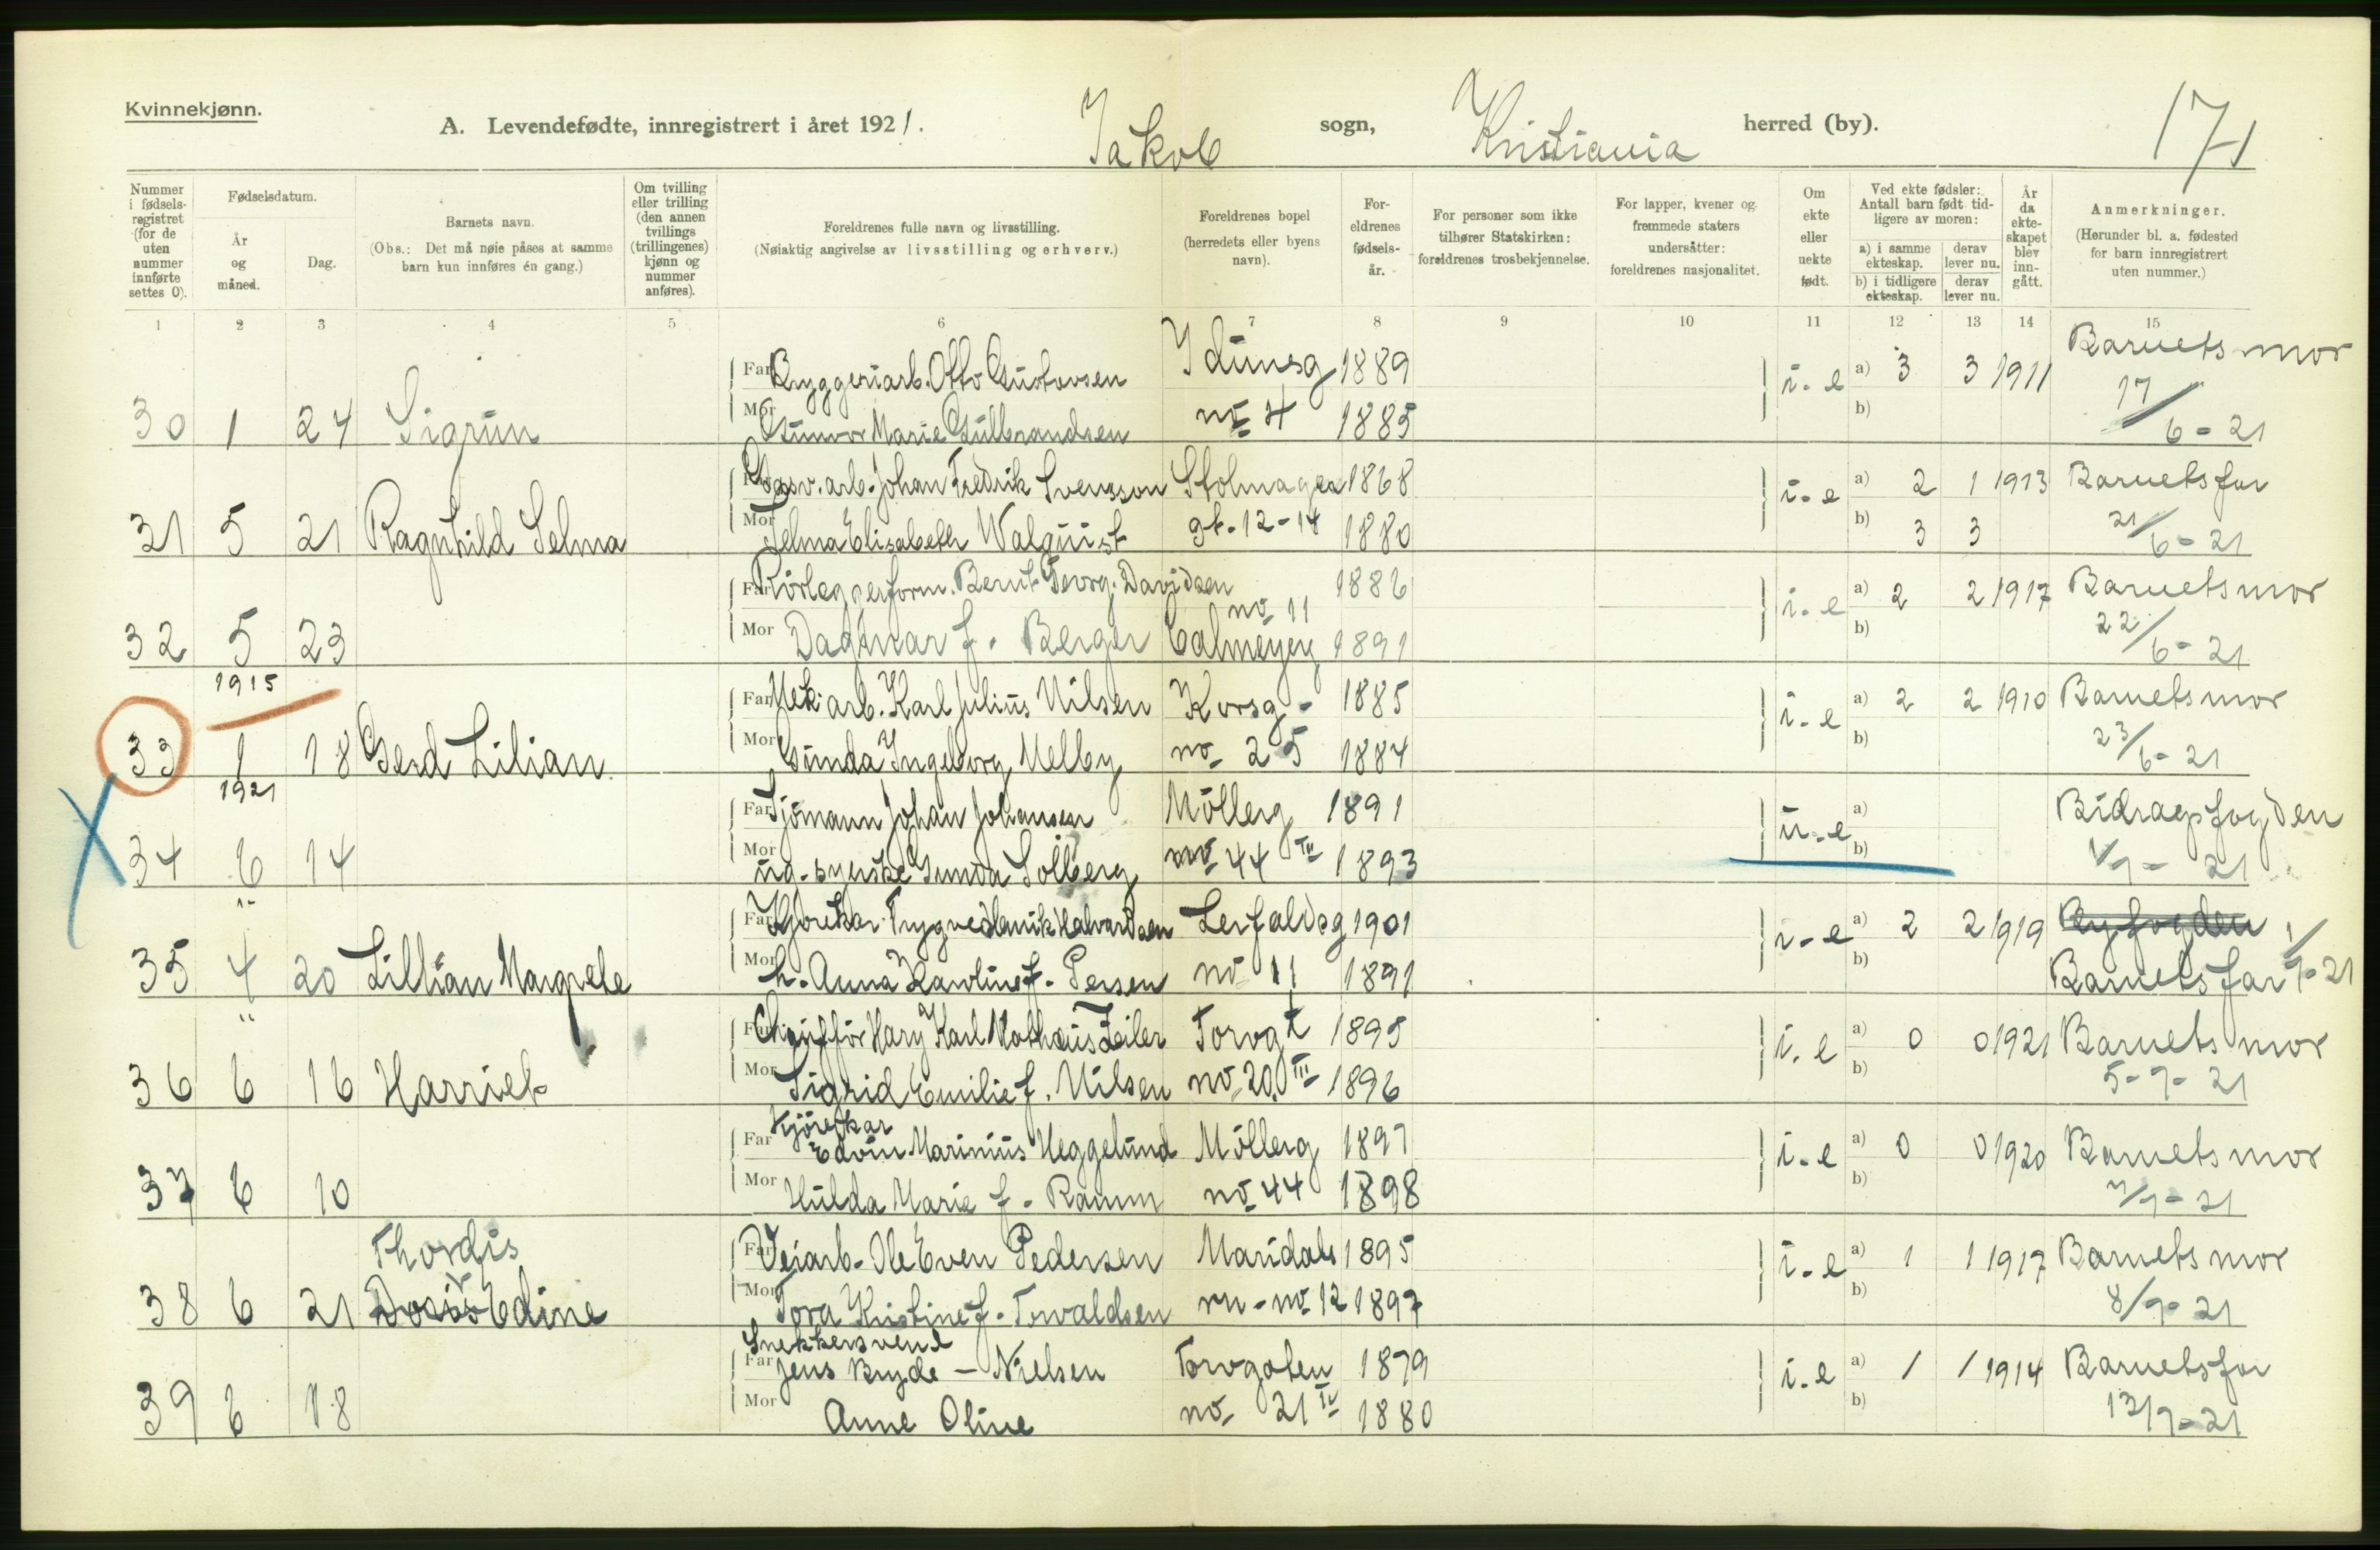 Kvinnekjønn.
A. Levendefødte, innregistrert i året 1921. Jakob sogn, Kristiania herred (by). 171
Nummer i fødsels-registret (for de uten nummer innførte settes 0).
Fødselsdatum.
År og måned.
Dag.
Barnets navn.
(Obs.: Det må nøie påses at samme barn kun innføres én gang.)
Om tvilling eller trilling (den annen tvillings (trillingenes) kjønn og nummer anføres).
Foreldrenes fulle navn og livsstilling.
(Nøiaktig angivelse av livsstilling og erhverv.)
Foreldrenes bopel (herredets eller byens navn).
For-eldrenes fødsels-år.
For personer som ikke tilhører Statskirken: foreldrenes trosbekjennelse.
For lapper, kvener og fremmede staters undersåtter: foreldrenes nasjonalitet.
Om ekte eller uekte født.
Ved ekte fødsler: Antall barn født tid-ligere av moren:
a) i samme ekteskap.
derav lever nu.
b) i tidligere ekteskap.
derav lever nu.
År da ekte-skapet blev inn-gått.
Anmerkninger.
(Herunder bl. a. fødested for barn innregistrert uten nummer.)
1 2 3 4 5 6 7 8 9 10 11 12 13 14 15
Far Bryggeriarb. Otto Gustavsen Idunsg 1889 i.e a) 3 3 1911 Barnets mor
30 1 24 Sigrun Mor Gunvor Marie Gulbrandsen no 4 1885 b) 17/6-21
Far Gasv. arb. Johan Fredrik Svensson Stolmagea 1868 i-e a) 2 1 1913 Barnets far
31 5 21 Ragnhild Selma Mor Selma Elisabeth Walquist gt-12-14 1880 b) 3 3 21/6-21
Far Rörleggerform. Bernt Georg. Davidsen no 11 1886 i.e a) 2 2 1917 Barnets mor
32 5 23 Mor Dagmar f. Berger Calmeyerg 1891 b) 22/6-21
1915
Far Mek. arb. Karl Julius Nilsen Korsg- 1885 i-e a) 2 2 1910 Barnets mor
33 1 18 Gerd Lilian Mor Gunda Ingeborg Melby no 25 1884 b) 23/6-21
1921
Far Sjömann Johan Johansen Möllerg 1891 u-e a) Bidragsfogden
34 6 14 Mor ug. syerske Gunda Solberg no 44 III 1893 b) 1/7-21
"
Far Kjörekar Trygve Henrik Halvardsen Lerfaldsg 1901 i-e a) 2 2 1919 Byfogden 1/7-21
35 4 20 Lillian Margrete Mor h. Anna Karoline f. Persen no 11 1891 b) Barnets far
"
Far Chaufför Hary Karl Mathæus Zeiler Torvgt 1895 i.e a) 0 0 1921 Barnets mor
36 6 16 Harriet Mor Sigrid Emilie f. Nilsen no 20 III 1896 b) 5-7-21
Kjörekar
Far Edvin Marinius Heggelund Möllerg 1897 i-e a) 0 0 1920 Barnets mor
37 6 10 Mor Hulda Marie f. Ramm no 44 1898 b) 7/7-21
Thordis
Far Veiarb. Ole Even Pedersen Maridals 1895 i-e a) 1 1 1917 Barnets mor
38 6 21 Edine Mor Tora Kristine f. Torvaldsen vn-no 12 1897 b) 8/7-21
Snekkersvend
Far Jens Bryde - Nielsen Torvgaten 1879 i.e a) 1 1 1914 Barnets far
39 6 18 Mor Anne Oline no 21 IV 1880 b) 13/7-21